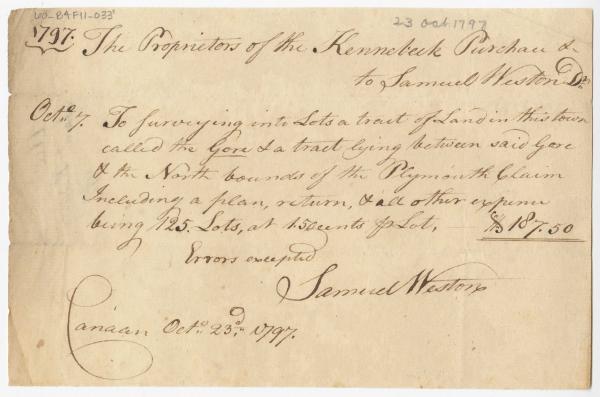 UO-84F11-033
23 Oct 1797
1797. The Proprietors of the Kennebeck Purchase &
to Samuel Weston Dr.
Octo. 7. To Surveying into Lots a tract of Land in this town
called the Gore & a tract lying between said Gore
& the North bounds of the Plymouth Claim
Including a plan, return, & all other expence
being 125. Lots, at 150 cents pr Lot, 187.50
Errors excepted
Samuel Weston
Canaan Octo. 23d. 1797.